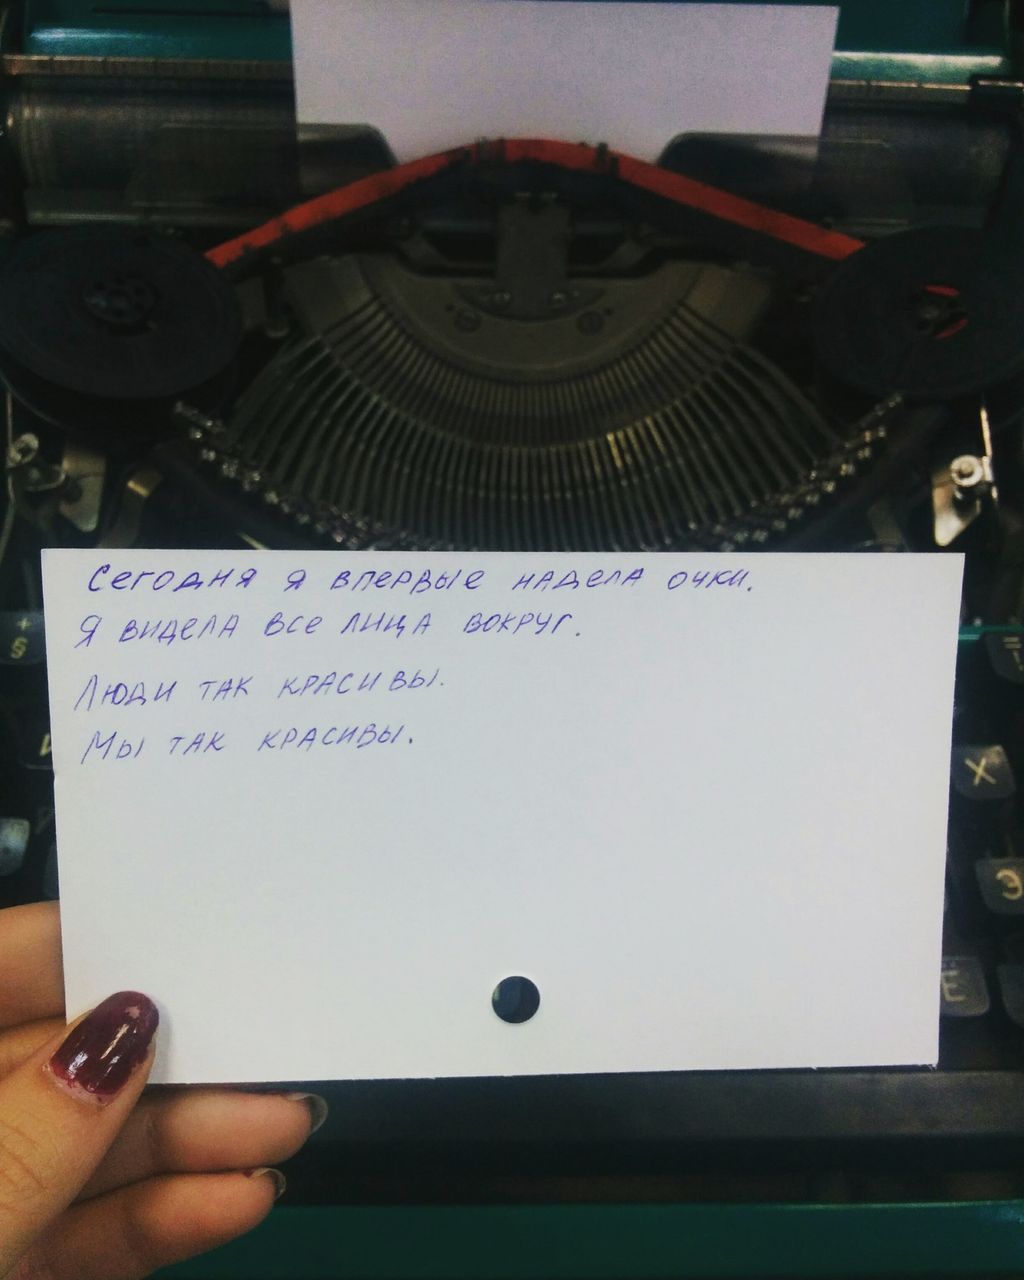 Сегодня я впервые надела очки.
Я видела все лица вокруг.
Люди так красивы.
Мы так красивы.
+
§
=
Х
Э
Ё